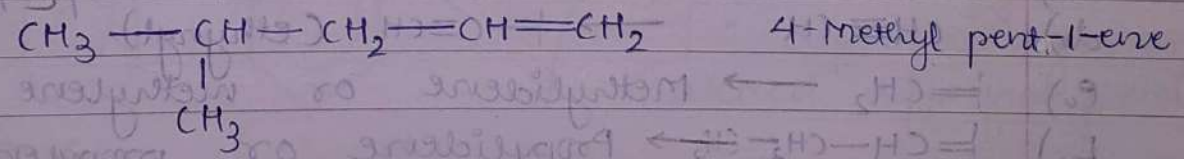 CH3 — CH — CH2 — CH = CH2 4-Methyl pent-1-ene
|
CH3